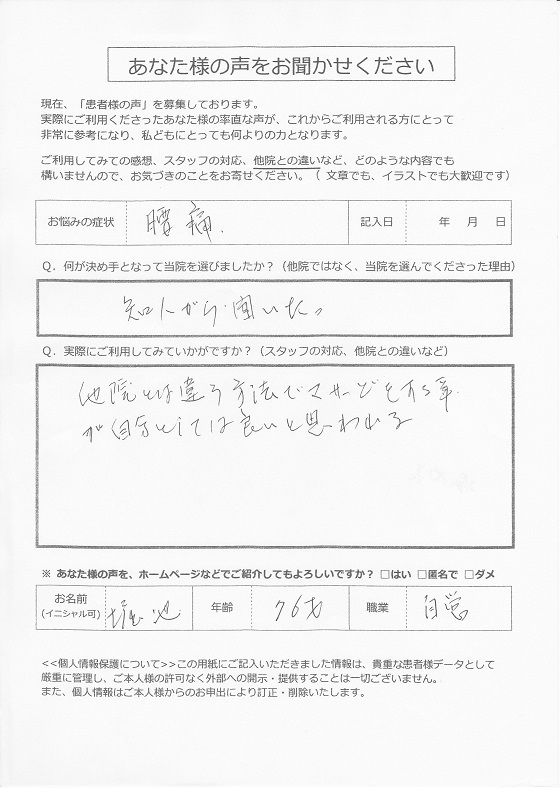 あなた様の声をお聞かせください
現在、「患者様の声」を募集しております。
実際にご利用くださったあなた様の率直な声が、これからご利用される方にとって
非常に参考になり、私どもにとっても何よりの力となります。
ご利用してみての感想、スタッフの対応、他院との違いなど、どのような内容でも
構いませんので、お気づきのことをお寄せください。（ 文章でも、イラストでも大歓迎です）
お悩みの症状 腰痛. 記入日 年 月 日
Q．何が決め手となって当院を選びましたか？（他院ではなく、当院を選んでくださった理由）
知人から聞いた。
Q．実際にご利用してみていかがですか？（スタッフの対応、他院との違いなど）
他院とは違う方法でマサージをする事
が自分としては良いと思われる
※ あなた様の声を、ホームページなどでご紹介してもよろしいですか？ □はい □匿名で □ダメ
お名前
(イニシャル可) 年齢 76才 職業 自営
<<個人情報保護について>>この用紙にご記入いただきました情報は、貴重な患者様データとして
厳重に管理し、ご本人様の許可なく外部への開示・提供することは一切ございません。
また、個人情報はご本人様からのお申出により訂正・削除いたします。